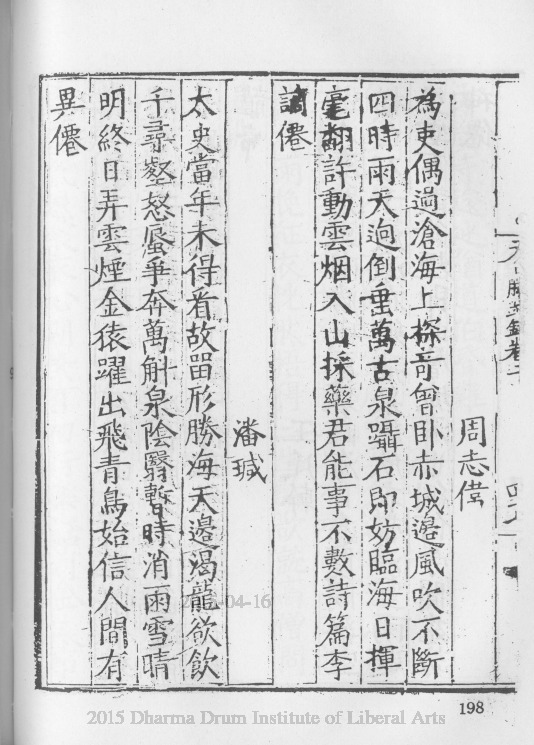 周志偉
為吏偶過滄海上探奇曾卧赤城邊風吹不斷
四時雨天逈倒垂萬古泉躡石即妨臨海日揮
毫翻許動雲烟入山採藥君能事不數詩篇李
謫僊
潘瑊
太史當年未得看故留形勝海天邊渴龍欲飲
千尋壑怒蜃爭奔萬斛泉陰翳暫時消雨雪晴
明終日弄雲煙金猿躍出飛青鳥始信人間有
異僊
198
2015 Dharma Drum Institute of Liberal Arts